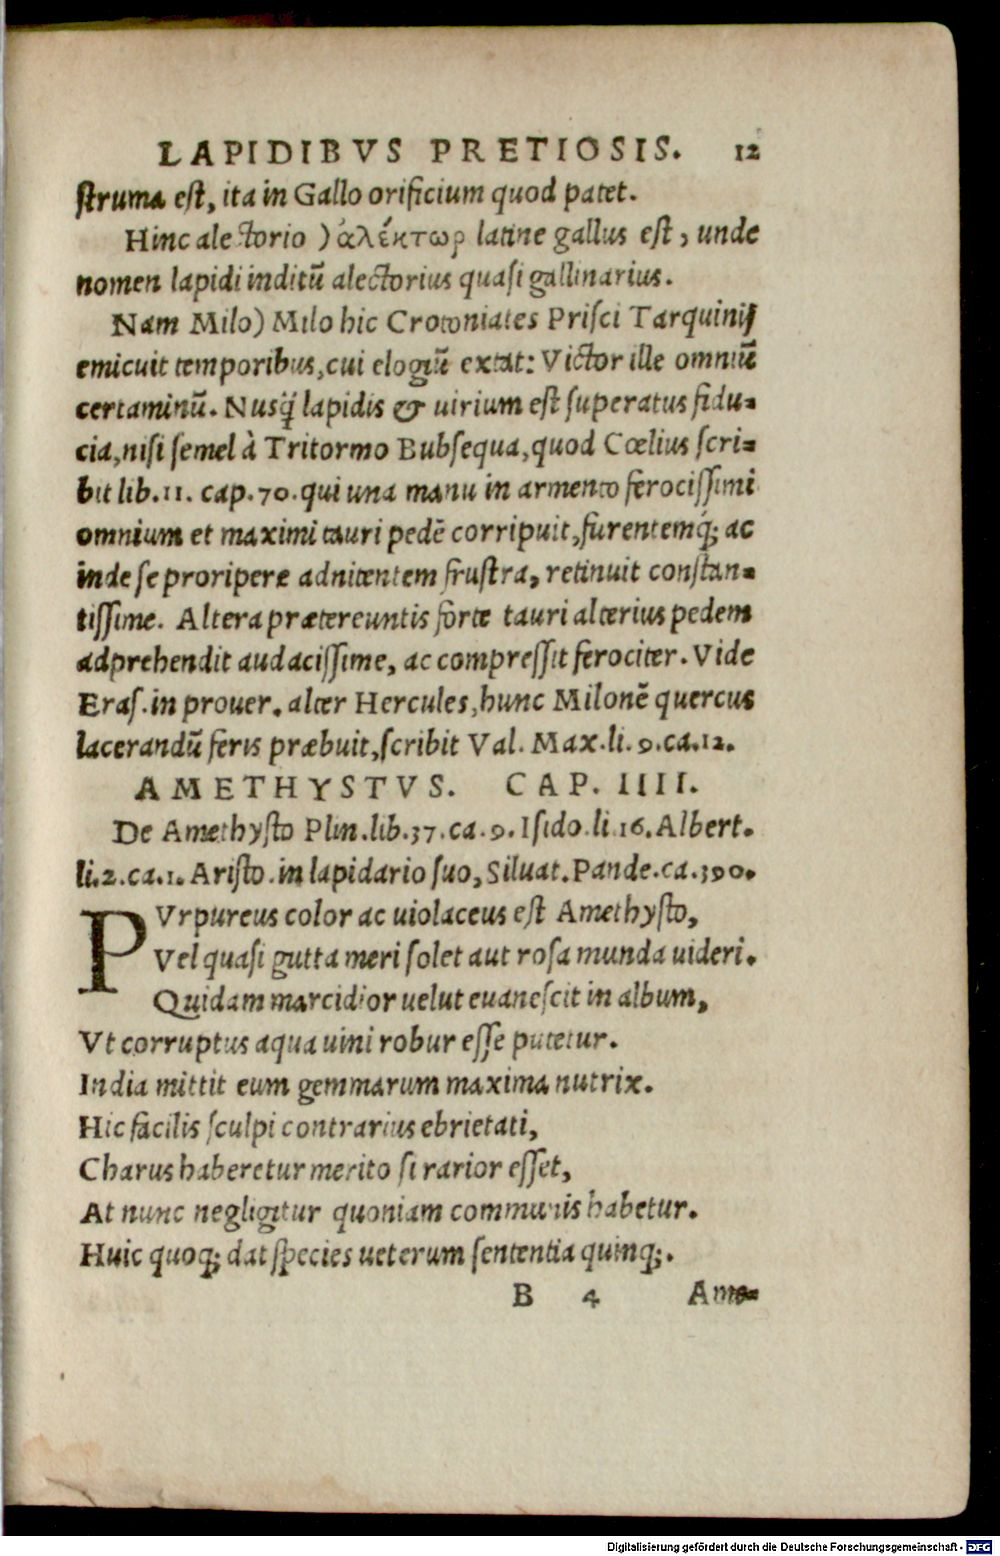 LAPIDIBVS PRETIOSIS. 12
struma est, ita in Gallo orificium quod patet.
Hinc alectorio ) ἀλέκτωρ latine gallus est, unde
nomen lapidi inditũ alectorius quasi gallinarius.
Nam Milo) Milo hic Crotoniates Prisci Tarquinij
emicuit temporibus, cui elogiũ extat: Victor ille omniũ
certaminũ. Nusq̃ lapidis & uirium est superatus fidu-
cia, nisi semel à Tritormo Bubsequa, quod Cœlius scri-
bit lib. 11. cap. 70. qui una manu in armento ferocissimi
omnium et maximi tauri pedẽ corripuit, furentemq́; ac
inde se proripere adnitentem frustra, retinuit constan-
tissime. Altera prætereuntis forte tauri alterius pedem
adprehendit audacissime, ac compressit ferociter. Vide
Eras. in prouer. alter Hercules, hunc Milonẽ quercus
lacerandũ feris præbuit, scribit Val. Max. li. 9. ca. 12.
AMETHYSTVS. CAP. IIII.
De Amethysto Plin. lib. 37. ca. 9. Isido. li. 16. Albert.
li. 2. ca. 1. Aristo. in lapidario suo, Siluat. Pande. ca. 390.
PVrpureus color ac uiolaceus est Amethysto,
Vel quasi gutta meri solet aut rosa munda uideri.
Quidam marcidior uelut euanescit in album,
Vt corruptus aqua uini robur esse putetur.
India mittit eum gemmarum maxima nutrix.
Hic facilis sculpi contrarius ebrietati,
Charus haberetur merito si rarior esset,
At nunc negligitur quoniam communis habetur.
Huic quoq; dat species ueterum sententia quinq;.
B 4 Ame-
Digitalisierung gefördert durch die Deutsche Forschungsgemeinschaft - DFG